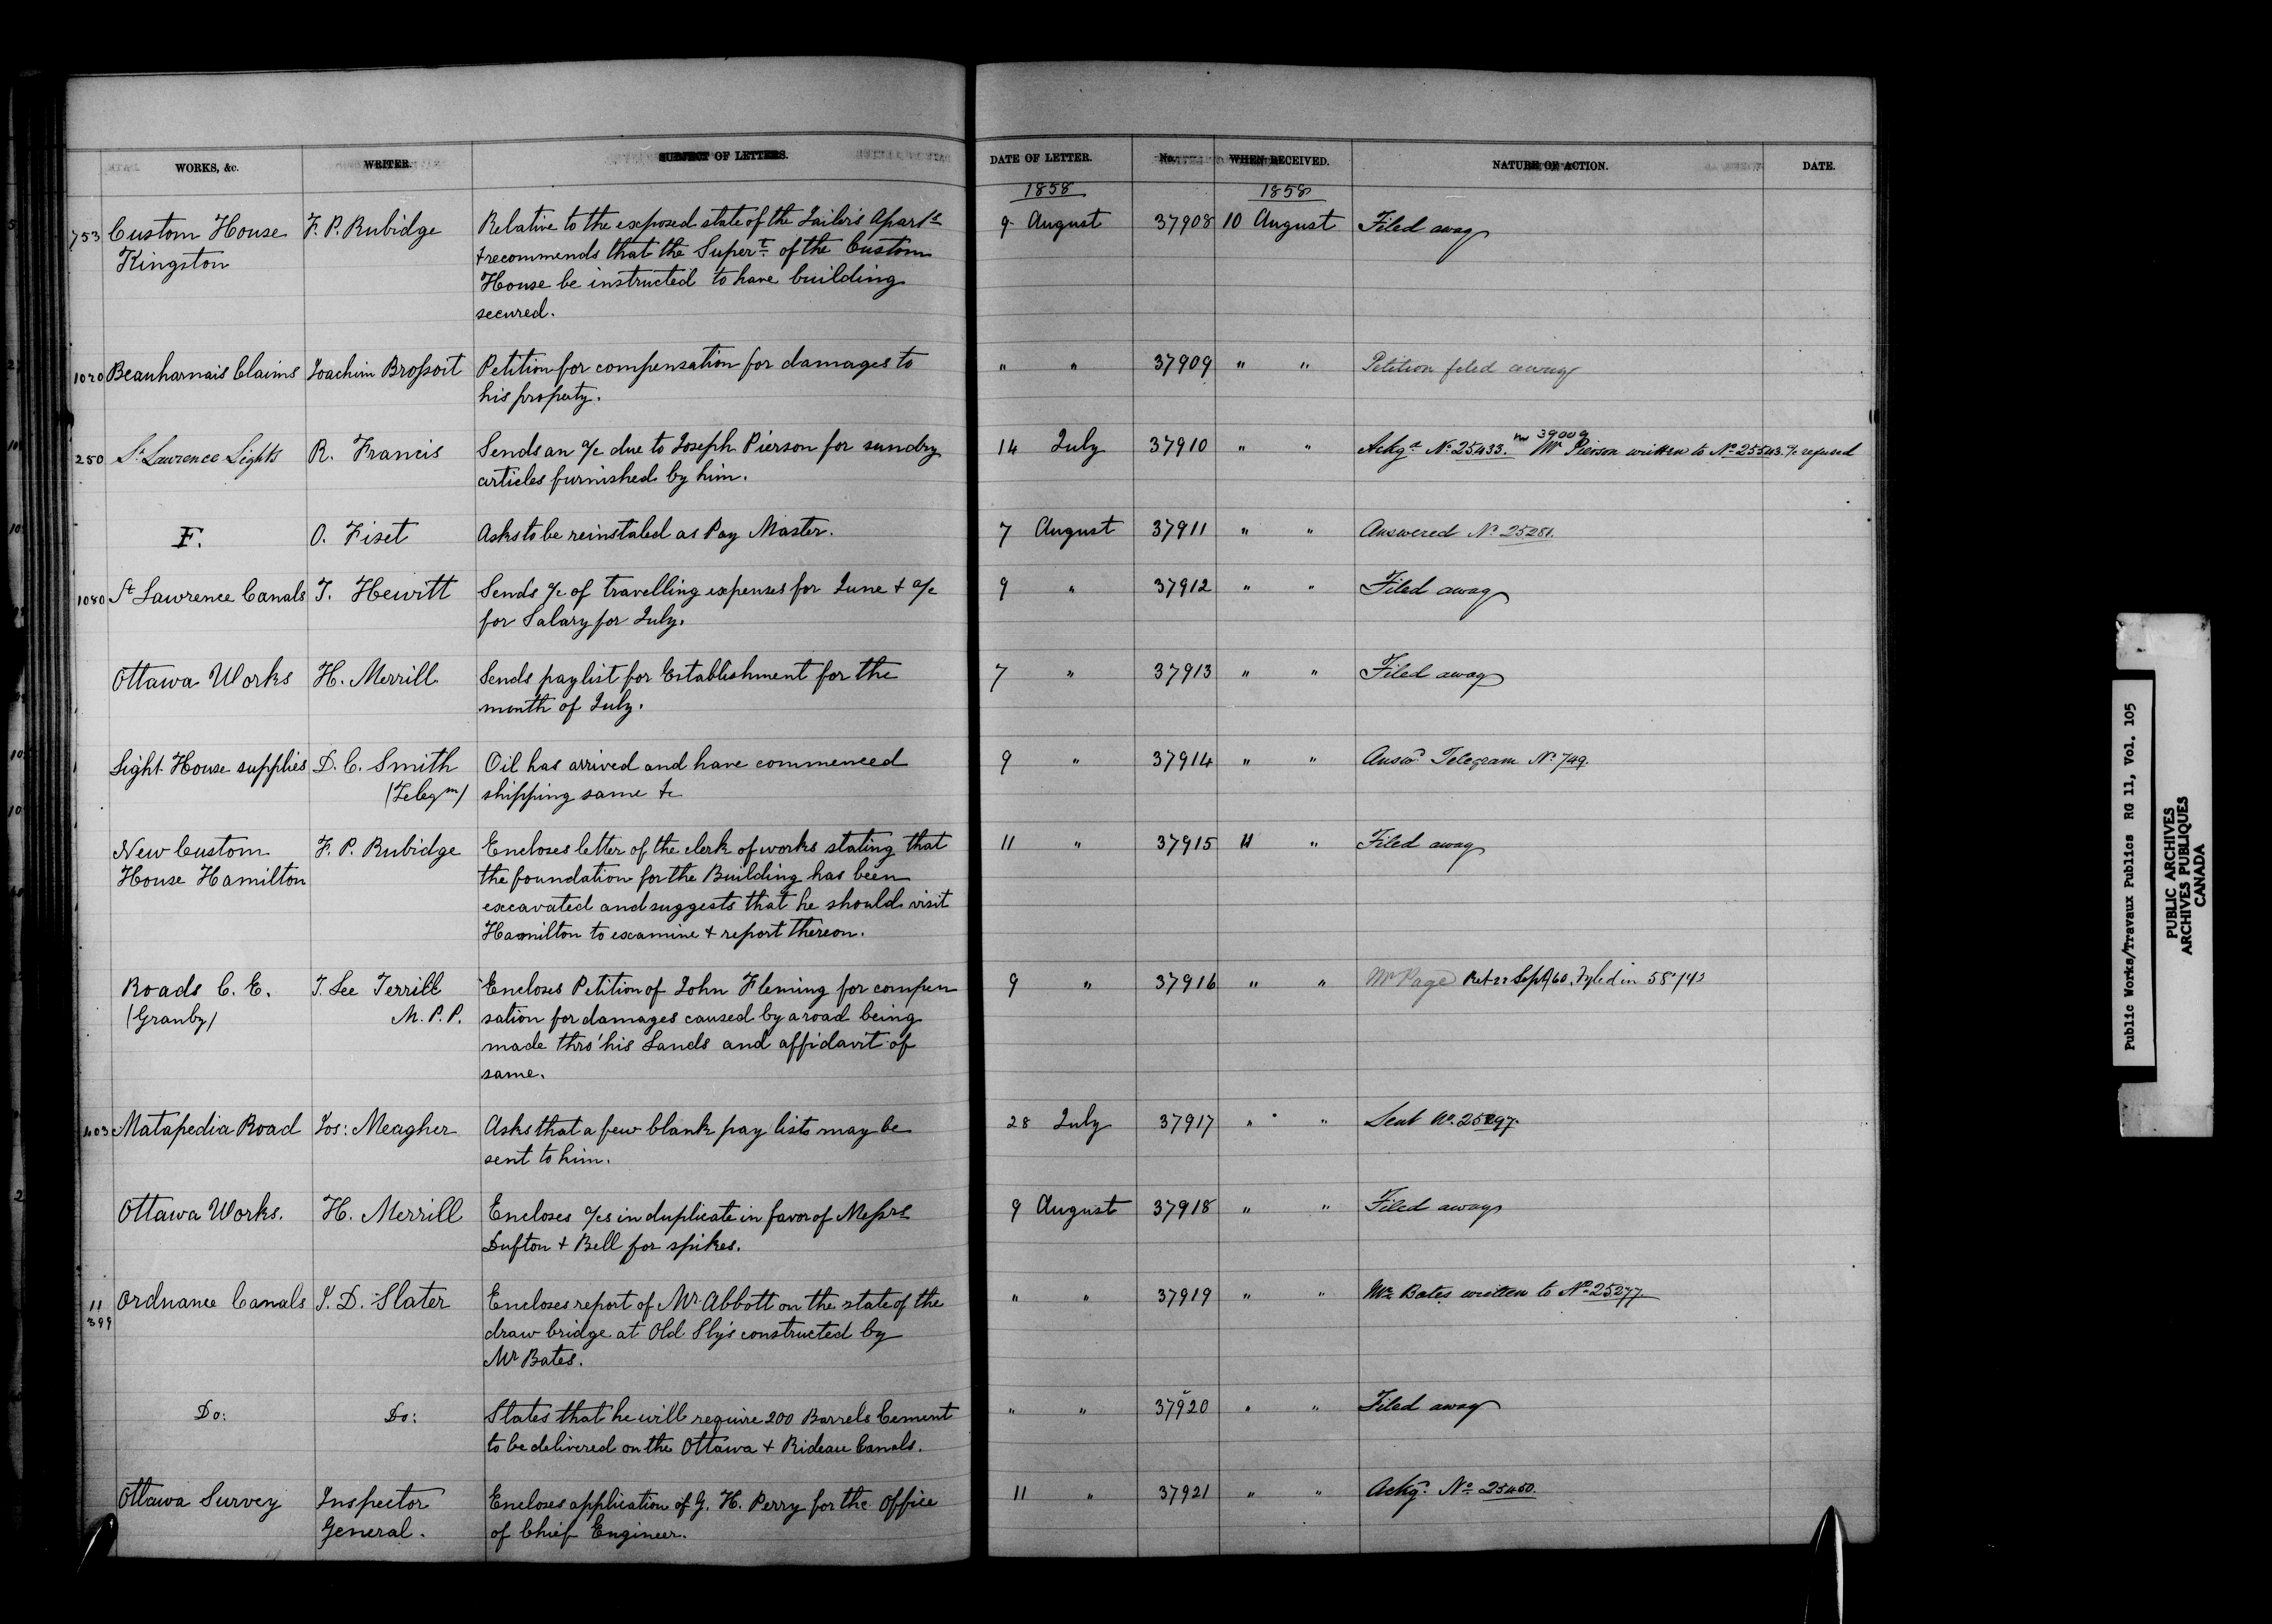 WORKS, &c. WRITER. SUBJECT OF LETTERS. DATE OF LETTER. No. WHEN RECEIVED. NATURE OF ACTION. DATE.
1858 1858
753 Custom House F. P. Rubidge Relative to the exposed state of the Jailer's Apart.ts 9 August 37908 10 August Filed away
Kingston & recommends that the Super.t of the Custom
House be instructed to have building
secured.
1020 Beauharnais Claims Joachim Brossoit Petition for compensation for damages to " " 37909 " " Petition filed away
his property.
39009
250 St Lawrence Lights R. Francis Sends an a/c due to Joseph Pierson for sundry 14 July 37910 " " Ackgd No 25433. Mr Pierson written to No 25543. a/c refused
articles furnished by him.
F. O. Fiset Asks to be reinstated as Pay Master. 7 August 37911 " " Answered No 25281.
1080 St Lawrence Canals T. Hewitt Sends a/c of travelling expenses for June & a/c 9 " 37912 " " Filed away
for Salary for July.
Ottawa Works H. Merrill Sends paylist for Establishment for the 7 " 37913 " " Filed away
month of July.
Light House supplies D. C. Smith Oil has arrived and have commenced 9 " 37914 " " Answd Telegram No 749.
(Telegm) shipping same &c
New Custom F. P. Rubidge Encloses letter of the clerk of works stating that 11 " 37915 11 " Filed away
House Hamilton the foundation for the Building has been
excavated and suggests that he should visit
Hamilton to examine & report thereon.
Roads C. E. T. Lee Terrill Encloses Petition of John Fleming for compen 9 " 37916 " " Mr Page Ret 22 Sept/60. Fyled in
(Granby) M. P. P. sation for damages caused by a road being
made thro' his Lands and affidavit of
same.
403 Matapedia Road Jos: Meagher Asks that a few blank pay lists may be 28 July 37917 " " Sent No. 25297.
sent to him.
Ottawa Works. H. Merrill Encloses a/cs in duplicate in favor of Messrs 9 August 37918 " " Filed away
Dufton & Bell for spikes.
11 Ordnance Canals J. D. Slater Encloses report of Mr Abbott on the state of the " " 37919 " " Mr Bates written to No 25277.
399 draw bridge at Old Slys constructed by
Mr Bates.
Do: Do: States that he will require 200 Barrels Cement " " 37920 " " Filed away
to be delivered on the Ottawa & Rideau Canals.
Ottawa Survey Inspector Encloses application of G. H. Perry for the Office 11 " 37921 " " Ackgd. No 25450.
General. of Chief Engineer.
Public Works/Travaux Publics RG 11, Vol. 105
PUBLIC ARCHIVES
ARCHIVES PUBLIQUES
CANADA